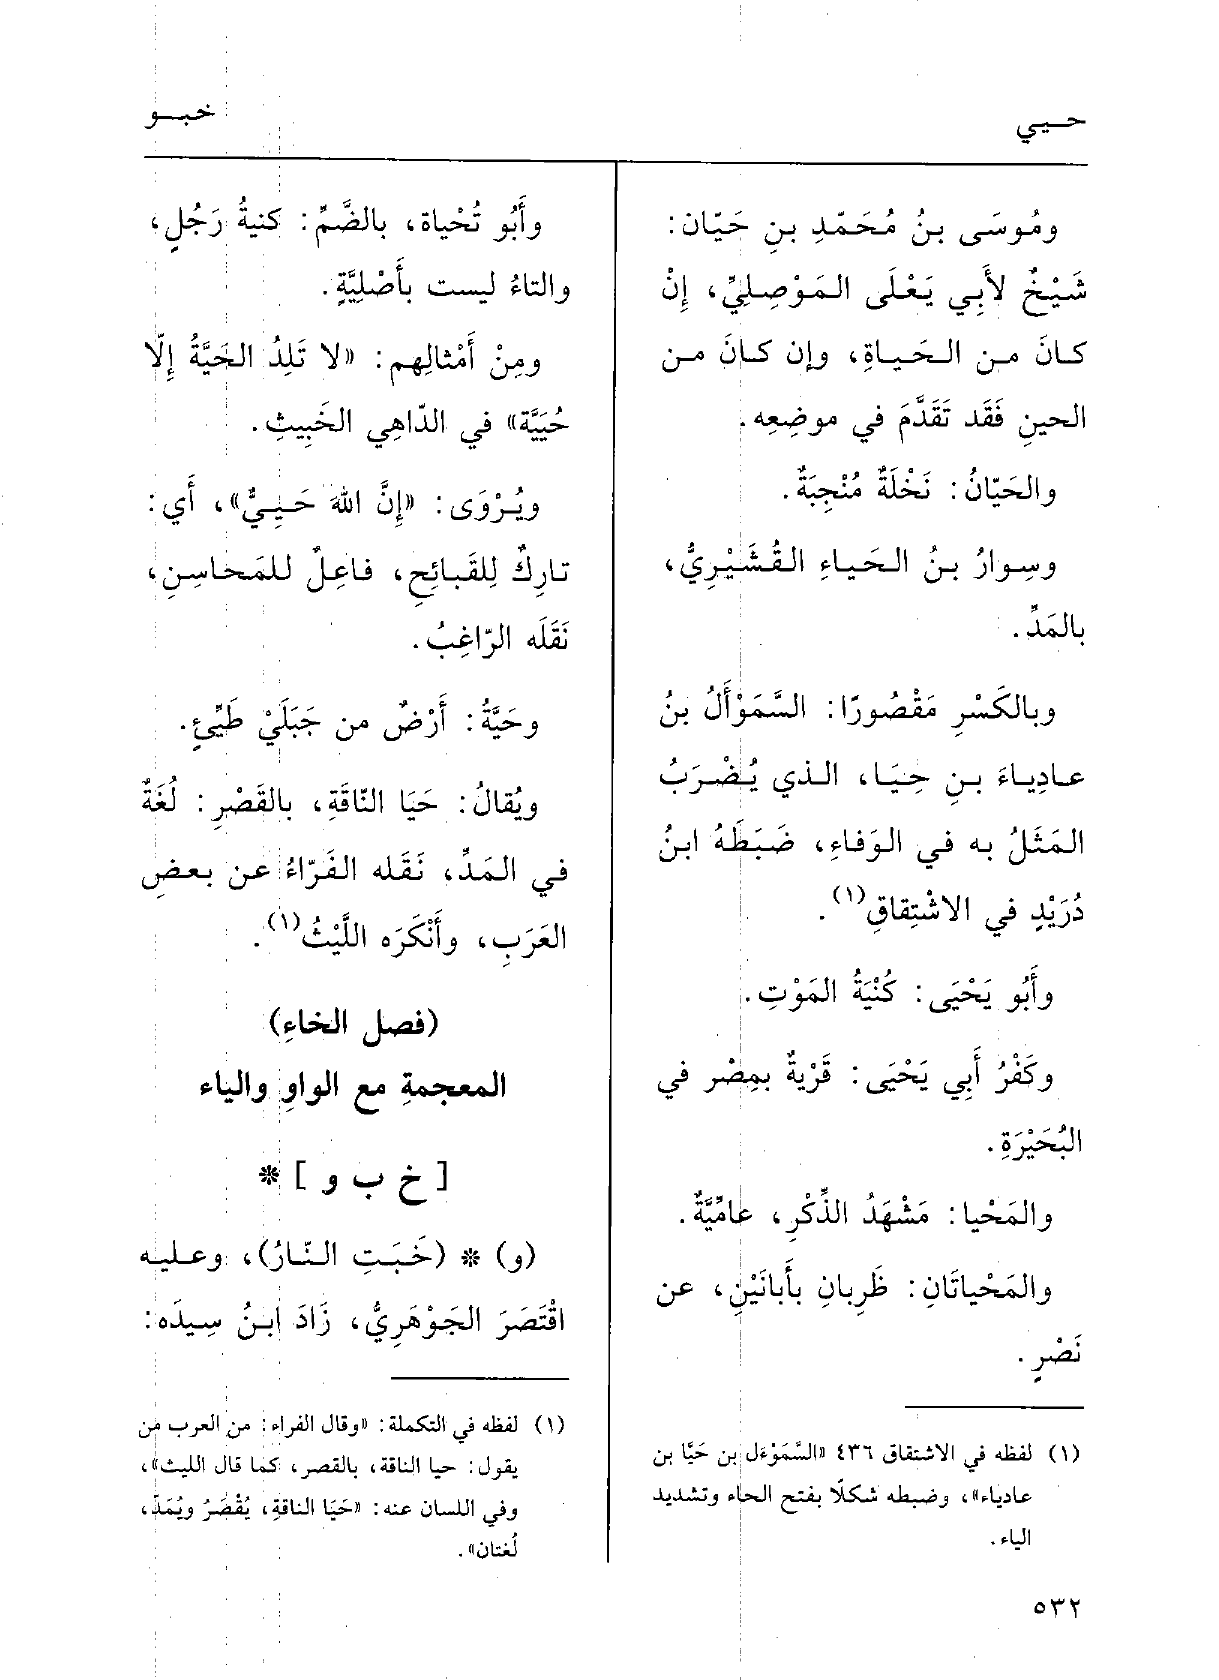 حـيـي
خبـو
ومُوسَى بنُ مُحَمّدِ بنِ حَيّان:
شَيْخٌ لأَبِي يَعْلَى المَوْصِلِيِّ، إِنْ
كانَ من الحَياةِ، وإن كانَ من
الحينِ فَقَد تَقَدَّمَ في موضِعِه.
والحَيّانُ: نَخْلَةٌ مُنْجِبَةٌ.
وسِوارُ بنُ الحَياءِ القُشَيْرِيُّ،
بالمَدِّ.
وبالكَسْرِ مَقْصُورًا: السَّمَوْأَلُ بنُ
عادِياءَ بنِ حِيَا، الذي يُضْرَبُ
المَثَلُ به في الوَفاءِ، ضَبَطَهُ ابنُ
دُرَيْدٍ في الاشْتِقاقِ(١).
وأَبُو يَحْيَى: كُنْيَةُ المَوْتِ.
وكَفْرُ أَبِي يَحْيَى: قَرْيةٌ بمِصْر في
البُحَيْرَةِ.
والمَحْيا: مَشْهَدُ الذِّكْرِ، عامِّيَّةٌ.
والمَحْياتَانِ: ظَرِبانِ بأَبانَيْنِ، عن
نَصْرٍ.
(١) لفظه في الاشتقاق ٤٣٦ «السَّمَوْءَل بن حَيَّا بن
عادياء»، وضبطه شكلًا بفتح الحاء وتشديد
الياء.
وأَبُو تُحْياة، بالضَّمِّ: كنيةُ رَجُلٍ،
والتاءُ ليست بأَصْلِيَّةٍ.
ومِنْ أَمْثالِهم: «لا تَلِدُ الحَيَّةُ إِلّا
حُيَيَّة» في الدّاهِي الخَبِيثِ.
ويُرْوَى: «إِنَّ اللهَ حَيِيٌّ»، أَي:
تارِكٌ لِلقَبائِحِ، فاعِلٌ للمَحاسِنِ،
نَقَلَه الرّاغِبُ.
وحَيَّةُ: أَرْضٌ من جَبَلَيْ طَيِّئٍ.
ويُقالُ: حَيَا النّاقَةِ، بالقَصْرِ: لُغَةٌ
في المَدِّ، نَقَله الفَرّاءُ عن بعضِ
العَرَبِ، وأَنْكَرَه اللَّيْثُ(١).
(فصل الخاءِ)
المعجمةِ مع الواوِ والياء
[ خ ب و ] *
(و) * (خَبَتِ النّارُ)، وعليه
اقْتَصَرَ الجَوْهَرِيُّ، زَادَ ابنُ سِيدَه:
(١) لفظه في التكملة: «وقال الفراء: من العرب من
يقول: حيا الناقة، بالقصر، كما قال الليث»،
وفي اللسان عنه: «حَيَا الناقةِ، يُقْصَرُ ويُمَدّ،
لُغتان».
٥٣٢